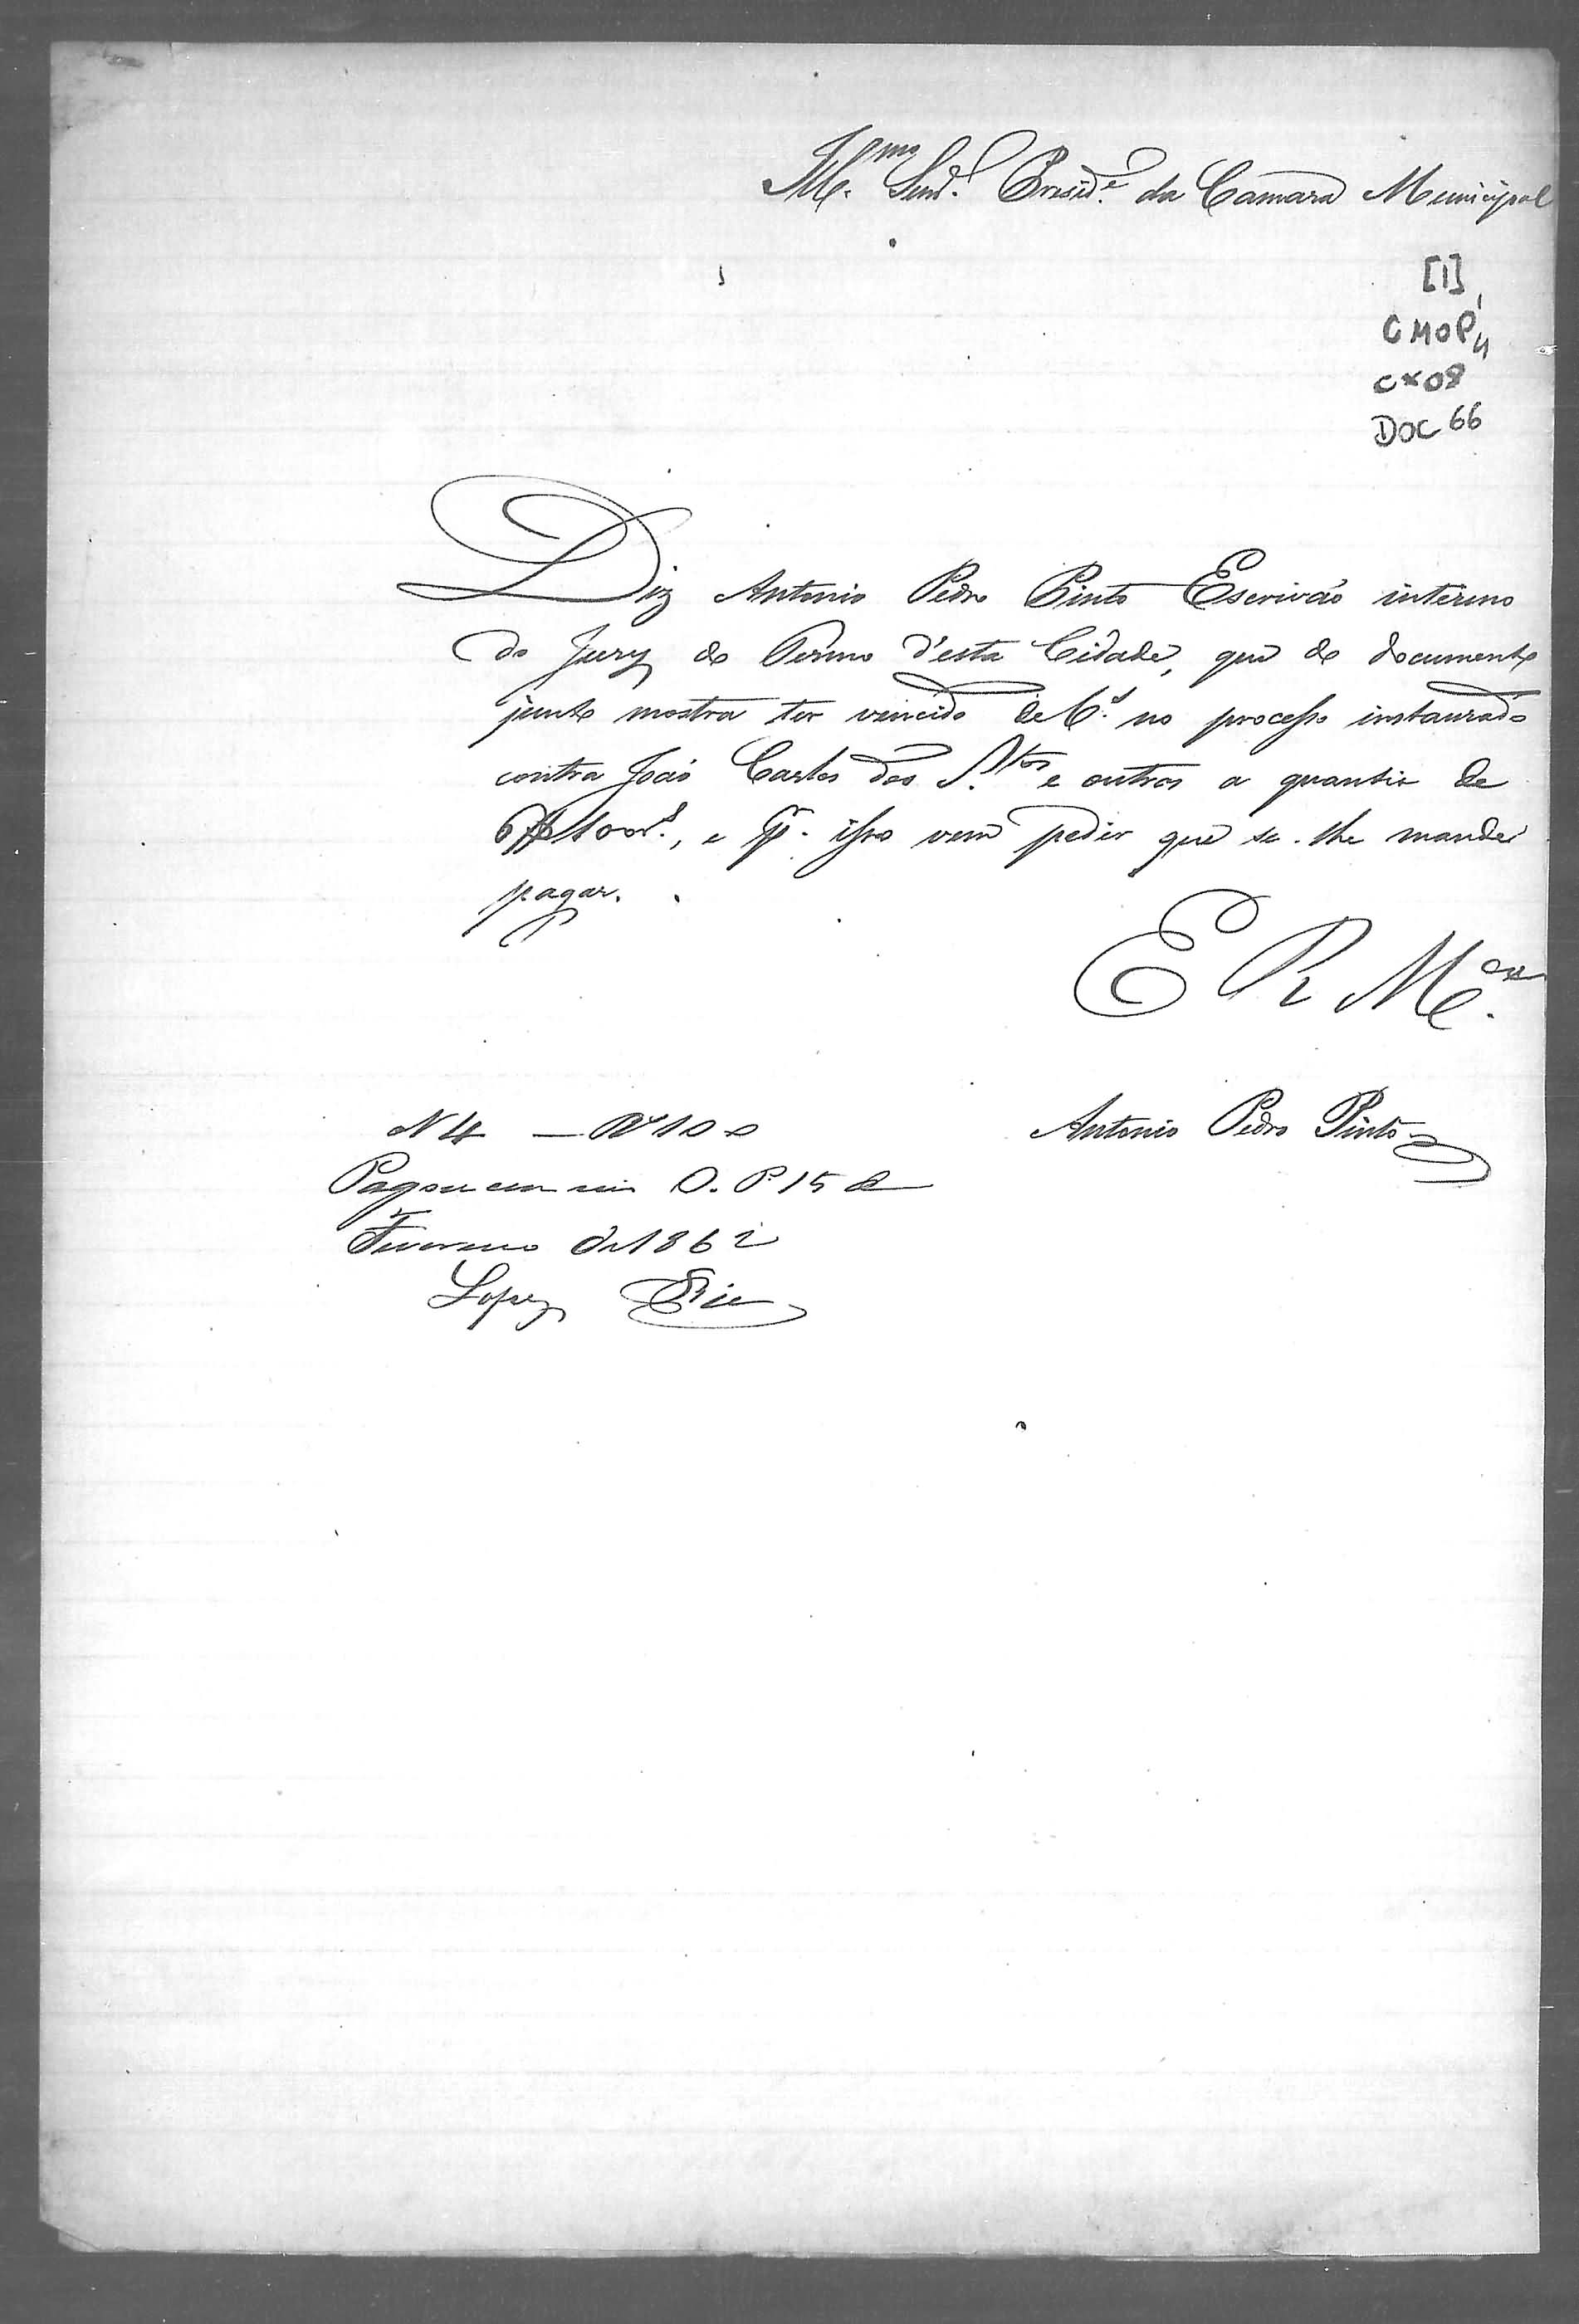 Ill.mo Snr. Presid.e da Camara Municipal
[1]
CMOP
CX 08
DOC 66
Diz Antonio Pedro Pinto Escrivão interino
do Jury do Termo d'esta Cidade, que do documento
junto mostra ter vencido de C.s no processo instaurado
contra João Carlos dos S.tos e outros a quantia de
6$100r.s, e p.r isso vem pedir que se lhe mande
pagar.
E R M.ce
Antonio Pedro Pinto
N 4 — R.s 100
Pagou cem reis O. P. 15 de
Fevereiro de 1862
Lopes